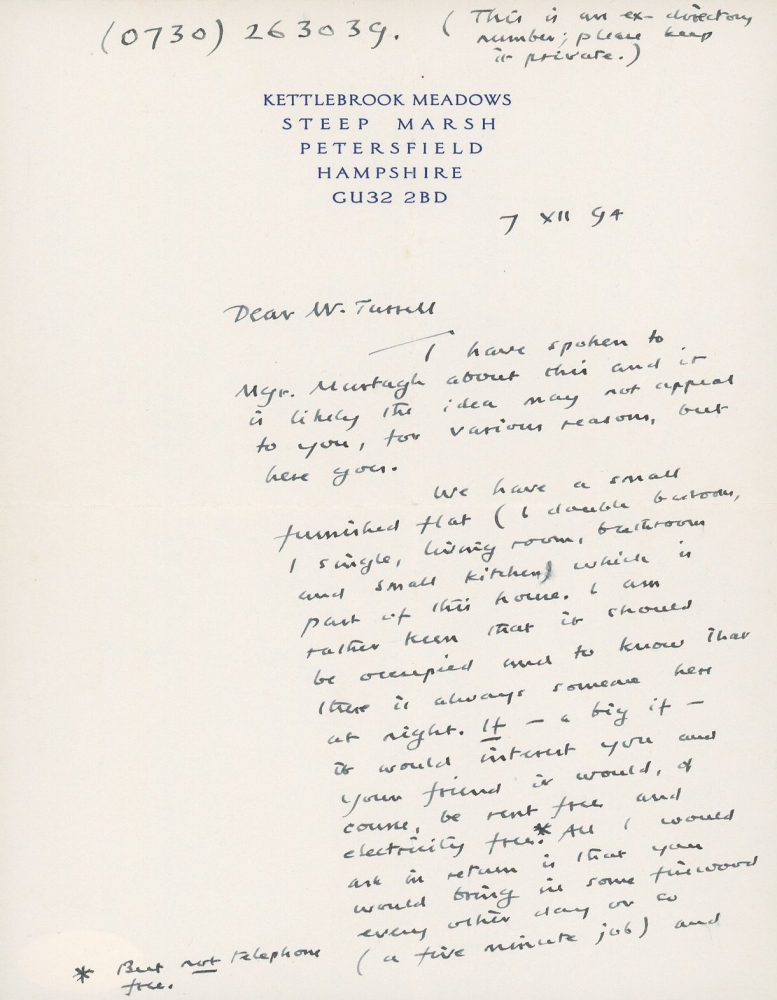 (0730) 263039. (This is an ex-directory
number; please keep
it private.)
KETTLEBROOK MEADOWS
STEEP MARSH
PETERSFIELD
HAMPSHIRE
GU32 2BD
7 XII 94
Dear Mr. Turrell
I have spoken to
Mgr. Murtagh about this and it
is likely the idea may not appeal
to you, for various reasons, but
here goes.
We have a small
furnished flat (1 double bedroom,
1 single, living room, bathroom
and small kitchen) which is
part of this house. I am
rather keen that it should
be occupied and to know that
there is always someone here
at night. If – a big if –
it would interest you and
your friend it would, of
course, be rent free and
electricity free.* All I would
ask in return is that you
would bring in some firewood
every other day or so
(a five minute job) and
* But not telephone
free.